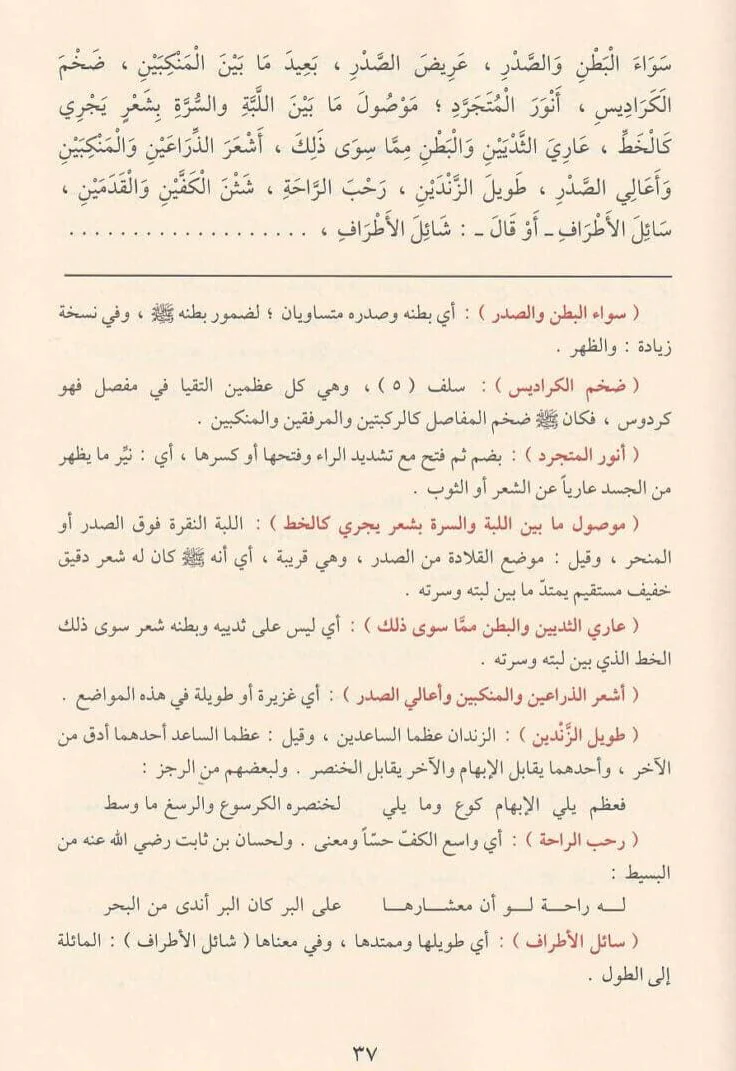 سَوَاءَ الْبَطْنِ وَالصَّدْرِ ، عَرِيضَ الصَّدْرِ ، بَعِيدَ مَا بَيْنَ الْمَنْكِبَيْنِ ، ضَخْمَ
الْكَرَادِيسِ ، أَنْوَرَ الْمُتَجَرَّدِ ؛ مَوْصُولَ مَا بَيْنَ اللَّبَّةِ وَالسُّرَّةِ بِشَعْرٍ يَجْرِي
كَالْخَطِّ ، عَارِيَ الثَّدْيَيْنِ وَالْبَطْنِ مِمَّا سِوَى ذَلِكَ ، أَشْعَرَ الذِّرَاعَيْنِ وَالْمَنْكِبَيْنِ
وَأَعَالِي الصَّدْرِ ، طَوِيلَ الزَّنْدَيْنِ ، رَحْبَ الرَّاحَةِ ، شَثْنَ الْكَفَّيْنِ وَالْقَدَمَيْنِ ،
سَائِلَ الأَطْرَافِ ـ أَوْ قَالَ ـ : شَائِلَ الأَطْرَافِ ، . . . . . . . . . . . . . . . . . . .
( سواء البطن والصدر ) : أي بطنه وصدره متساويان ؛ لضمور بطنه ﷺ ، وفي نسخة
زيادة : والظهر .
( ضخم الكراديس ) : سلف ( ٥ ) ، وهي كل عظمين التقيا في مفصل فهو
كردوس ، فكان ﷺ ضخم المفاصل كالركبتين والمرفقين والمنكبين .
( أنور المتجرد ) : بضم ثم فتح مع تشديد الراء وفتحها أو كسرها ، أي : نيِّر ما يظهر
من الجسد عارياً عن الشعر أو الثوب .
( موصول ما بين اللبة والسرة بشعر يجري كالخط ) : اللبة النقرة فوق الصدر أو
المنحر ، وقيل : موضع القلادة من الصدر ، وهي قريبة ، أي أنه ﷺ كان له شعر دقيق
خفيف مستقيم يمتدّ ما بين لبته وسرته .
( عاري الثديين والبطن ممَّا سوى ذلك ) : أي ليس على ثدييه وبطنه شعر سوى ذلك
الخط الذي بين لبته وسرته .
( أشعر الذراعين والمنكبين وأعالي الصدر ) : أي غزيرة أو طويلة في هذه المواضع .
( طويل الزَّنْدين ) : الزندان عظما الساعدين ، وقيل : عظما الساعد أحدهما أدق من
الآخر ، وأحدهما يقابل الإبهام والآخر يقابل الخنصر . ولبعضهم من الرجز :
فعظم يلي الإبهام كوع وما يلي لخنصره الكرسوع والرسغ ما وسط
( رحب الراحة ) : أي واسع الكفّ حسّاً ومعنى . ولحسان بن ثابت رضي الله عنه من
البسيط :
لـه راحـة لـو أن معشـارهـا على البر كان البر أندى من البحر
( سائل الأطراف ) : أي طويلها وممتدها ، وفي معناها ( شائل الأطراف ) : المائلة
إلى الطول .
٣٧